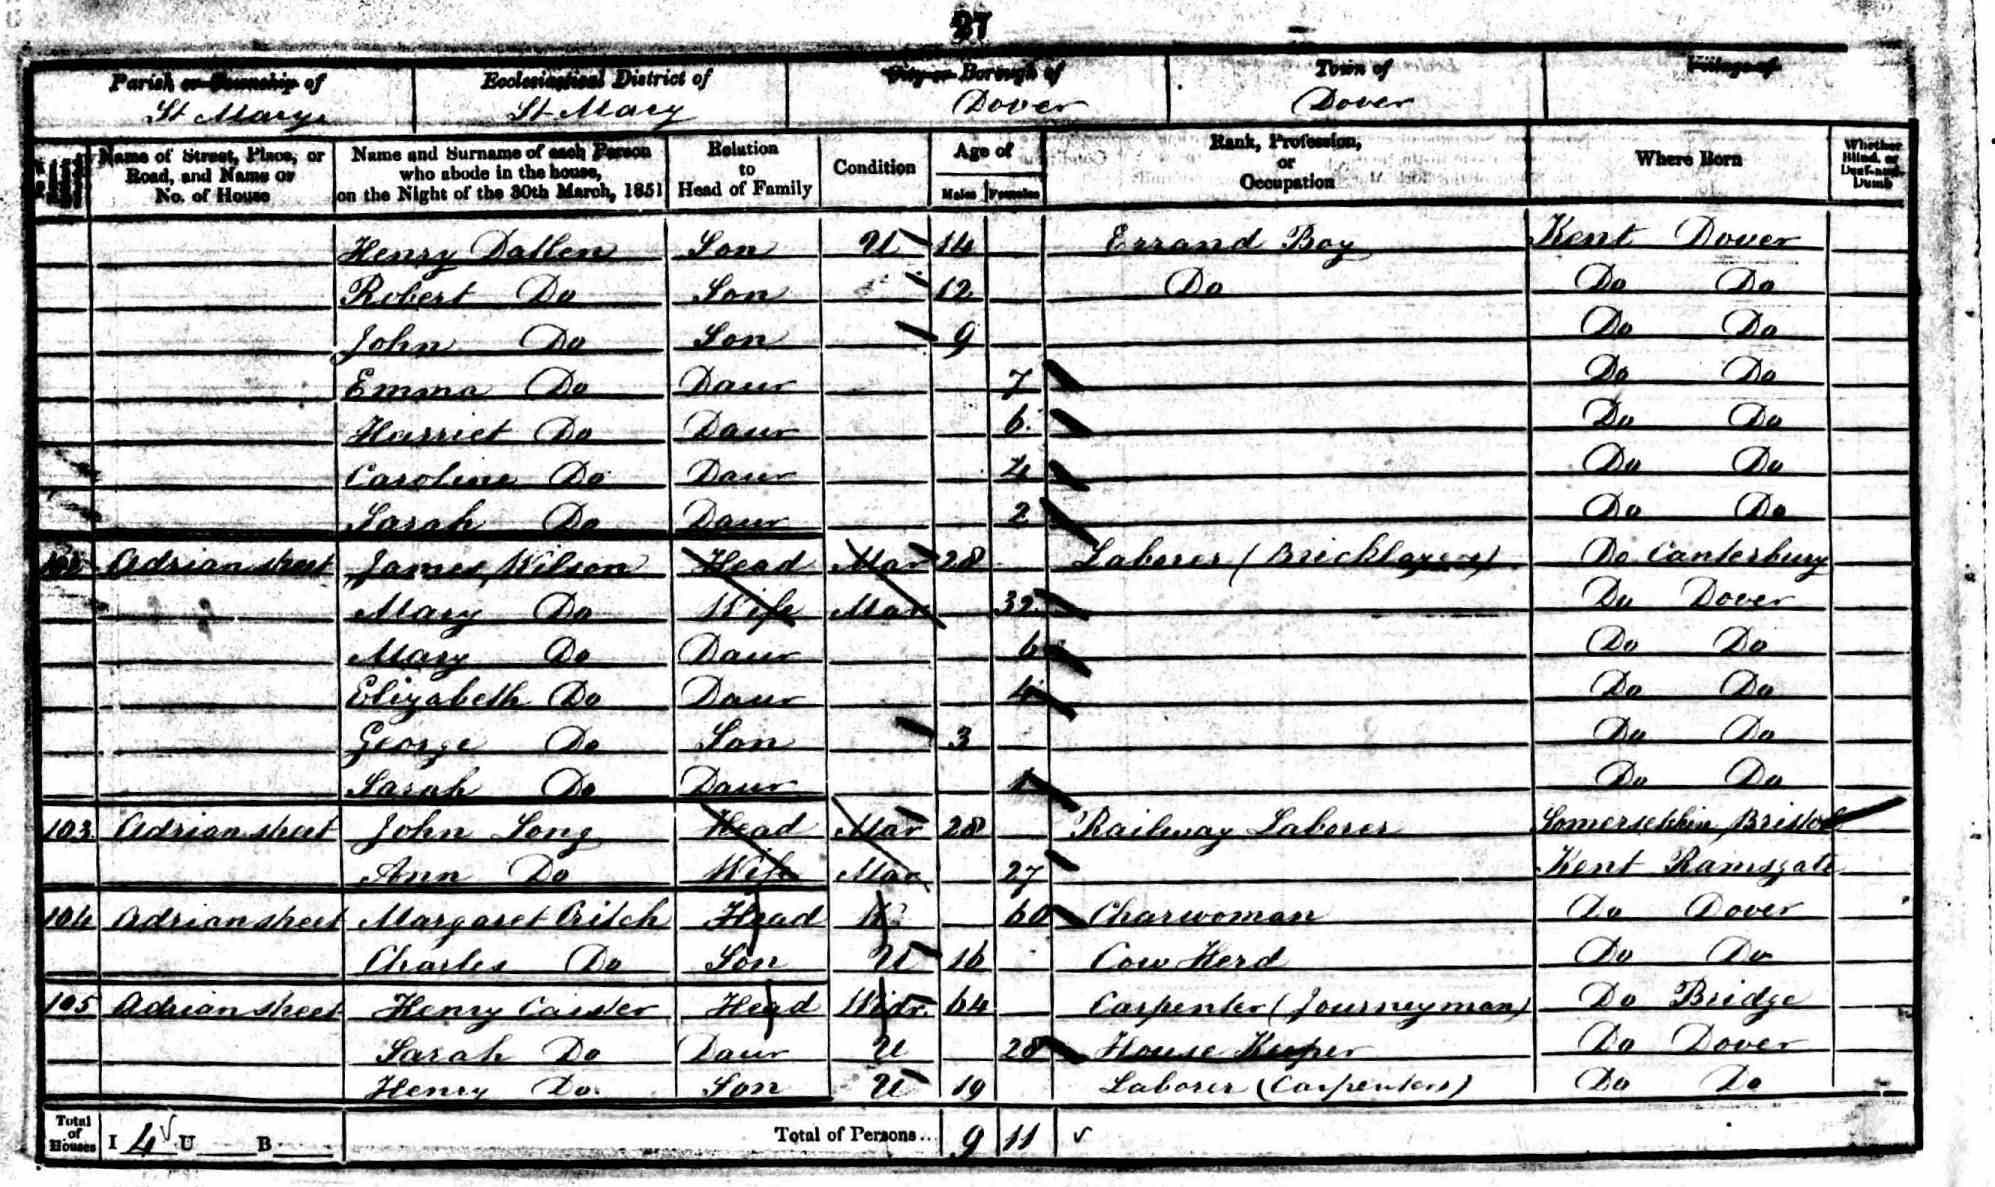 37
Parish or Township of
St Mary
Ecclesiastical District of
St Mary
City or Borough of
Dover
Town of
Dover
Village of
Name of Street, Place, or Road, and Name or No. of House
Name and Surname of each Person who abode in the house, on the Night of the 30th March, 1851
Relation to Head of Family
Condition
Age of
Males Females
Rank, Profession, or Occupation
Where Born
Whether Blind, or Deaf-and-Dumb
Henry Dallen Son U 14 Errand Boy Kent Dover
Robert Do Son 12 Do Do Do
John Do Son 9 Do Do
Emma Do Daur 7 Do Do
Harriet Do Daur 6 Do Do
Caroline Do Daur 4 Do Do
Sarah Do Daur 2 Do Do
102 Adrian street James Wilson Head Mar 28 Laborer (Bricklayers) Do Canterbury
Mary Do Wife Mar 32 Do Dover
Mary Do Daur 6 Do Do
Elizabeth Do Daur 4 Do Do
George Do Son 3 Do Do
Sarah Do Daur 1 Do Do
103 Adrian street John Long Head Mar 28 Railway Laborer Somersetshire Bristol
Ann Do Wife Mar 27 Kent Ramsgate
104 Adrian street Margaret Critch Head W 60 Charwoman Do Dover
Charles Do Son U 16 Cow Herd Do Do
105 Adrian street Henry Caister Head Widr. 64 Carpenter (Journeyman) Do Bridge
Sarah Do Daur U 28 House Keeper Do Dover
Henry Do. Son U 19 Laborer (Carpenters) Do Do
Total of Houses I 4 U B Total of Persons.. 9 11